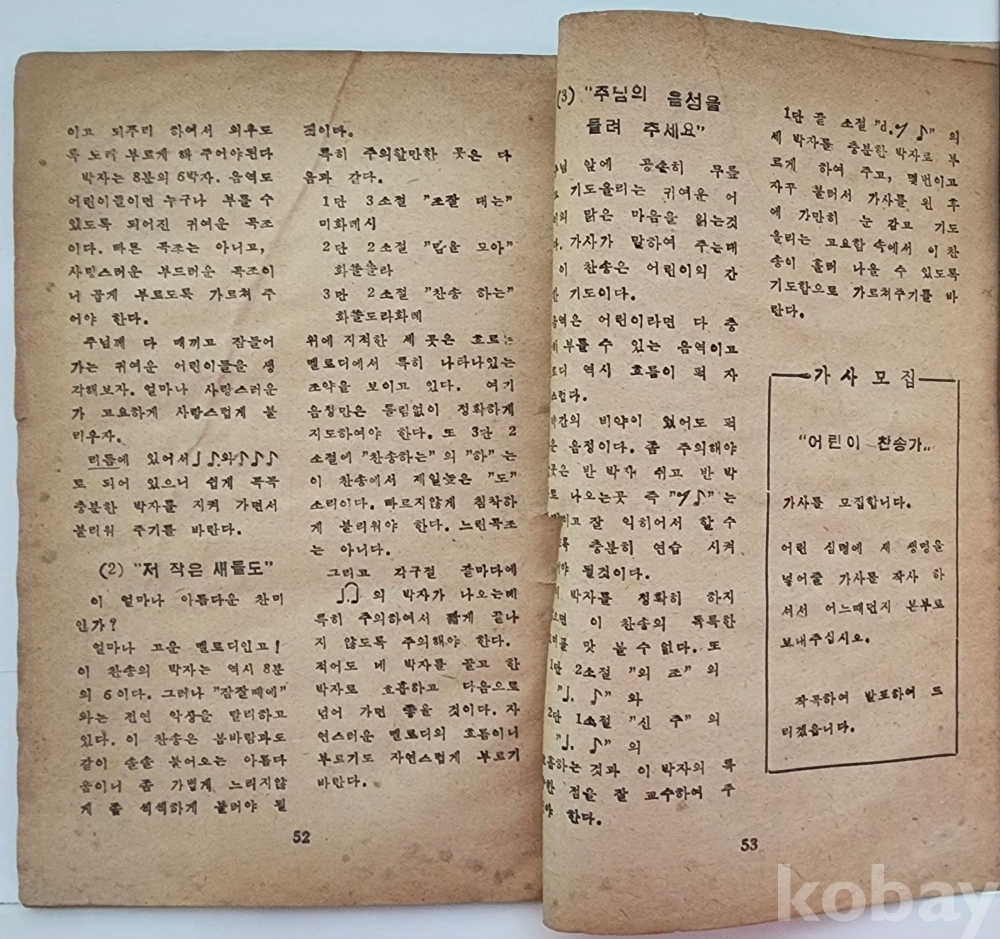 이고 되푸리 하여서 외우도
록 노래 부르게 해 주어야된다
박자는 8분의 6박자. 음역도
어린이들이면 누구나 부를 수
있도록 되어진 귀여운 곡조
이다. 빠른 곡조는 아니고,
사랑스러운 부드러운 곡조이
니 곱게 부르도록 가르쳐 주
어야 한다.
주님께 다 매끼고 잠들어
가는 귀여운 어린이들을 생
각해보자. 얼마나 사랑스러운
가 고요하게 사랑스럽게 불
리우자.
리듬에 있어서 ♩♪와 ♪♪♪
로 되어 있으니 쉽게 꼭꼭
충분한 박자를 지켜 가면서
불리워 주기를 바란다.
(2) "저 작은 새들도"
이 얼마나 아름다운 찬미
인가?
얼마나 고운 멜로디인고!
이 찬송의 박자는 역시 8분
의 6이다. 그러나 "잠잘때에"
와는 전연 악상을 달리하고
있다. 이 찬송은 봄바람과도
같이 솔솔 불어오는 아름다
움이니 좀 가볍게 느리지않
게 좀 씩씩하게 불러야 될
것이다.
특히 주의할만한 곳은 다
음과 같다.
1단 3소절 "조잘 대는"
미화레시
2단 2소절 "입을 모아"
화쏠쏠라
3단 2소절 "찬송 하는"
화쏠도라화레
위에 지적한 세 곳은 흐르는
멜로디에서 특히 나타나있는
조약을 보이고 있다. 여기
음정만은 틀림없이 정확하게
지도하여야 한다. 또 3단 2
소절에 "찬송하는"의 "하"는
이 찬송에서 제일높은 "도"
소리이다. 빠르지않게 침착하
게 불리워야 한다. 느린곡조
는 아니다.
그리고 각구절 끝마다에
♩.♫ 의 박자가 나오는데
특히 주의하여서 짧게 끝나
지 않도록 주의해야 한다.
적어도 네 박자를 끌고 한
박자로 호흡하고 다음으로
넘어 가면 좋을 것이다. 자
연스러운 멜로디의 흐름이니
부르기도 자연스럽게 부르기
바란다.
52
(3) "주님의 음성을
들려 주세요"
앞에 공손히 무릎
기도올리는 귀여운 어
맑은 마음을 읽는것
가사가 말하여 주는대
이 찬송은 어린이의 간
기도이다.
어린이라면 다 충
부를수 있는 음역이고
역시 흐름이 퍽 자
비약이 있어도 퍽
음정이다. 좀 주의해야
반 박자 쉬고 반 박
나오는곳 즉 "𝄾♪"는
잘 익히어서 할 수
충분히 연습 시켜
될것이다.
박자를 정확히 하지
이 찬송의 독특한
맛 볼 수 없다. 또
1단 2소절 "의 조" 의
"♩. ♪" 와
2단 1소절 "신 주" 의
"♩. ♪" 의
것과 이 박자의 특
점을 잘 교수하여 주
한다.
1단 끝 소절 "𝅗𝅥.𝄾♪" 의
세 박자를 충분한 박자로 부
르게 하여 주고, 몇번이고
자꾸 불러서 가사를 왼 후
에 가만히 눈 감고 기도
올리는 고요함 속에서 이 찬
송이 흘러 나올 수 있도록
기도함으로 가르쳐주기를 바
란다.
가사모집
"어린이 찬송가"
가사를 모집합니다.
어린 심령에 새 생명을
넣어줄 가사를 작사 하
셔서 어느때던지 본부로
보내주십시오.
작곡하여 발표하여 드
리겠읍니다.
53
kobay